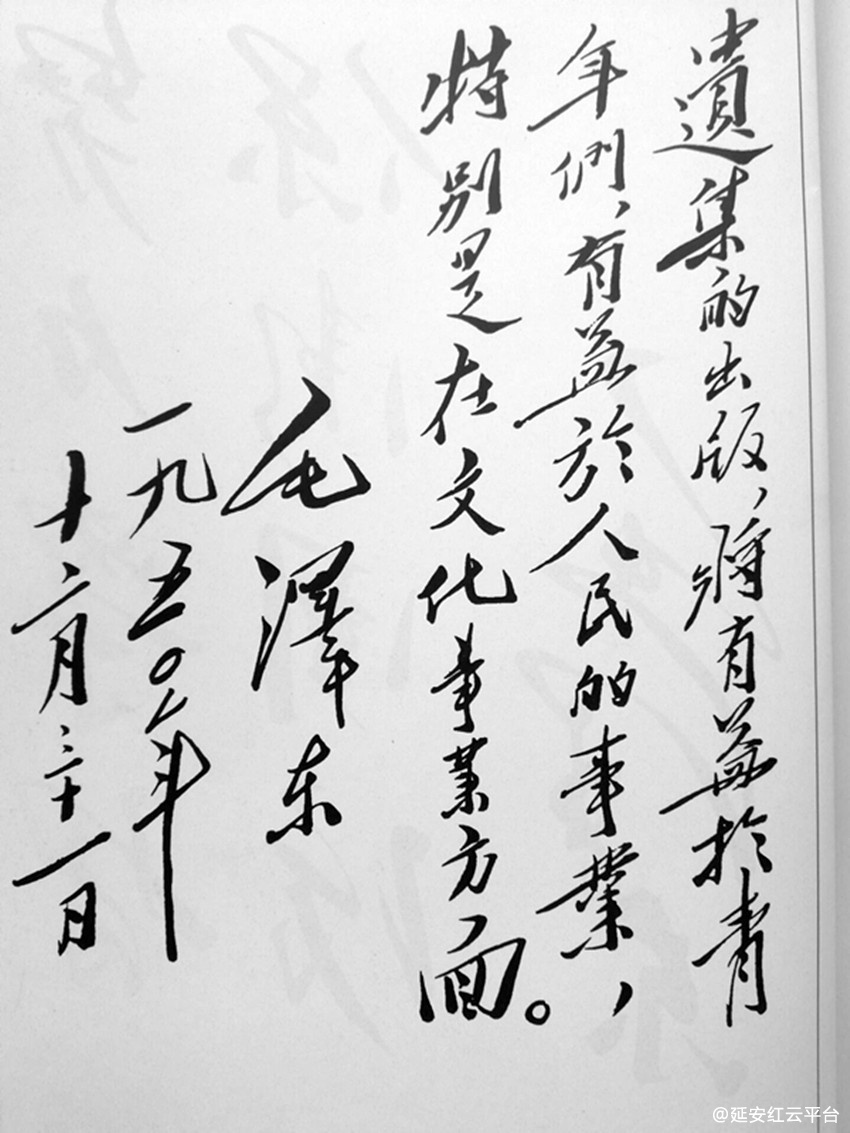 遺集的出版，將有益於青
年們，有益於人民的事業，
特别是在文化事業方面。
毛澤东
一九五〇年
十二月三十一日
@延安红云平台